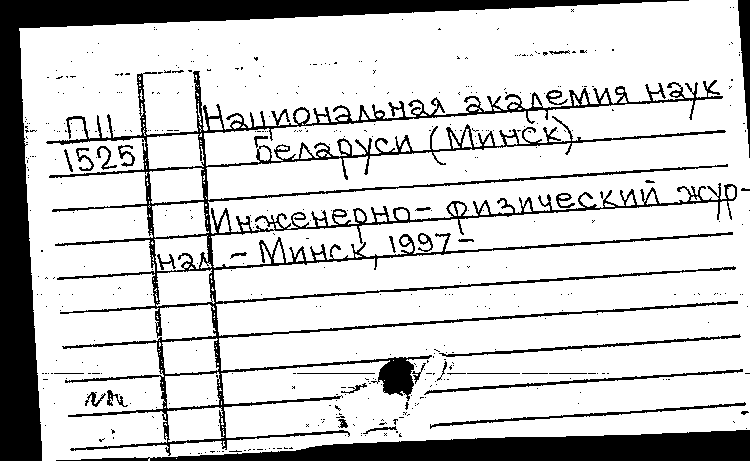 П11 Национальная академия наук
1525 Беларуси (Минск).
Инженерно-физический жур-
нал. - Минск, 1997-